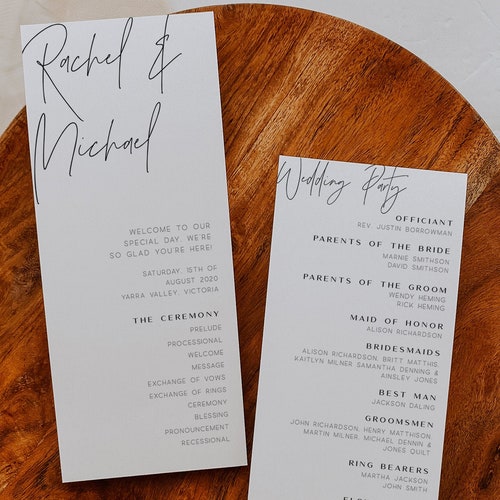 Rachel &
Michael
WELCOME TO OUR
SPECIAL DAY. WE'RE
SO GLAD YOU'RE HERE!
SATURDAY, 15TH OF
AUGUST 2020
YARRA VALLEY, VICTORIA
THE CEREMONY
PRELUDE
PROCESSIONAL
WELCOME
MESSAGE
EXCHANGE OF VOWS
EXCHANGE OF RINGS
CEREMONY
BLESSING
PRONOUNCEMENT
RECESSIONAL
Wedding Party
OFFICIANT
REV. JUSTIN BORROWMAN
PARENTS OF THE BRIDE
MARNIE SMITHSON
DAVID SMITHSON
PARENTS OF THE GROOM
WENDY HEMING
RICK HEMING
MAID OF HONOR
ALISON RICHARDSON
BRIDESMAIDS
ALISON RICHARDSON, BRITT MATTHIS
KAITLYN MILNER SAMANTHA DENNING &
AINSLEY JONES
BEST MAN
JACKSON DALING
GROOMSMEN
JOHN RICHARDSON, HENRY MATTHISON
MARTIN MILNER, MICHAEL DENNIN &
JONES QUILT
RING BEARERS
MARTHA JACKSON
JOHN SMITH